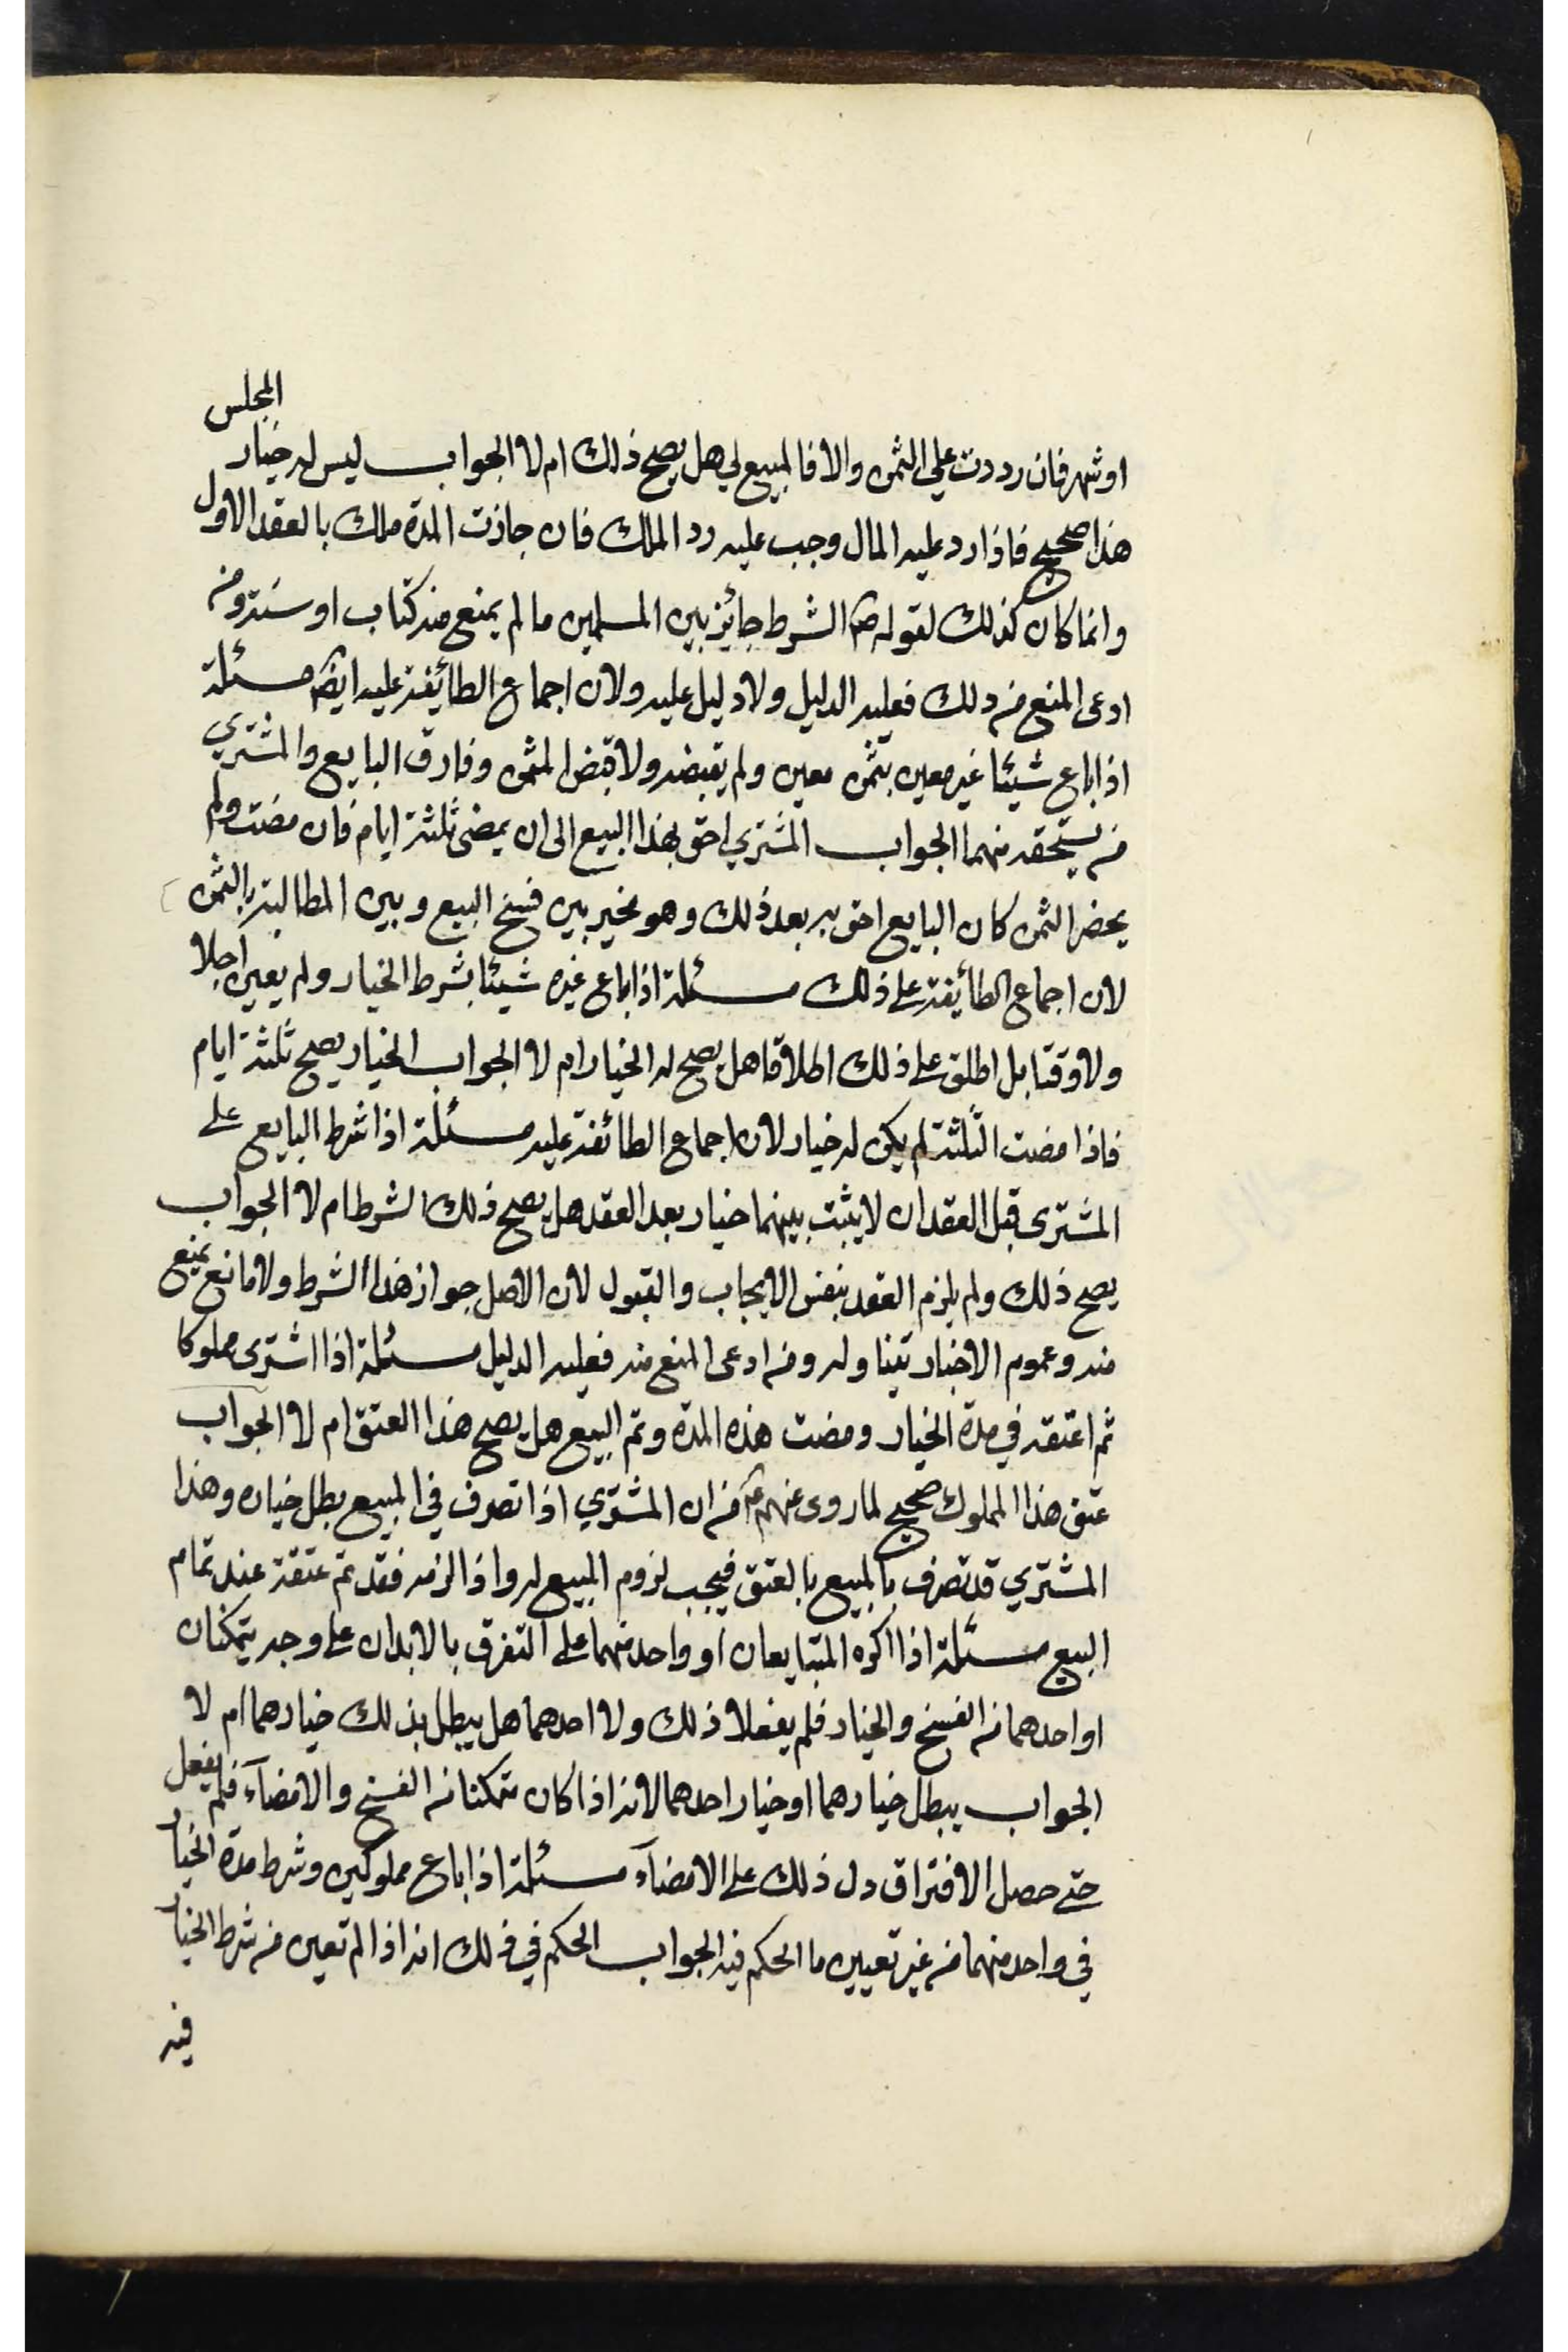 المجلس
او شهر فان رددت علي الثمن والا فالمبيع لي هل يصح ذلك ام لا الجواب ليس له خيار
هذا صحيح فاذا رد عليه المال وجب عليه رد الملك فان جازت المدة ملك بالعقد الاول
وانما كان كذلك لقوله ص الشرط جائز بين المسلمين ما لم يمنع منه كتاب او سنة ومن
ادعى المنع من ذلك فعليه الدليل ولا دليل عليه ولان اجماع الطائفة عليه ايضا مسئلة
اذا باع شيئا غير معين بثمن معين ولم يقبضه ولا قبض الثمن وفارق البايع والمشتري
من يستحقه منهما الجواب المشتري احق بهذا البيع الى ان يمضى ثلثة ايام فان مضت ولم
يحضر الثمن كان البايع احق به بعد ذلك وهو مخير بين فسخ البيع وبين المطالبة بالثمن
لان اجماع الطائفة على ذلك مسئلة اذا باع غيره شيئا بشرط الخيار ولم يعين اجلا
ولا وقتا بل اطلق على ذلك اطلاقا هل يصح له الخيار ام لا الجواب الخيار يصح ثلثة ايام
فاذا مضت الثلثة لم يكن له خيار لان اجماع الطائفة عليه مسئلة اذا شرط البايع على
المشترى قبل العقد ان لا يثبت بينهما خيار بعد العقد هل يصح ذلك الشرط ام لا الجواب
يصح ذلك ولم يلزم العقد بنفس الايجاب والقبول لان الاصل جواز هذا الشرط ولا مانع يمنع
منه وعموم الاخبار تتناوله ومن ادعى المنع منه فعليه الدليل مسئلة اذا اشترى مملوكا
ثم اعتقه في مدة الخيار ومضت هذه المدة وتم البيع هل يصح هذا العتق ام لا الجواب
عتق هذا المملوك صحيح لما روى عنهم ع من ان المشتري اذا تصرف في المبيع بطل خياره وهذا
المشتري قد تصرف بالمبيع بالعتق فيجب لزوم المبيع له واذا لزمه فقد تم عتقة عند تمام
البيع مسئلة اذا اكره المتبايعان او واحد منهما على التفرق بالابدان على وجه يتمكنان
او احدهما من الفسخ والخيار فلم يفعلا ذلك ولا احدهما هل يبطل بذلك خيارهما ام لا
الجواب يبطل خيارهما او خيار احدهما لانه اذا كان متمكنا من الفسخ والامضآء فلم يفعل
حتى حصل الافتراق دل ذلك على الامضآء مسئلة اذا باع مملوكين وشرط مدة الخيار
في واحد منهما من غير تعيين ما الحكم فيه الجواب الحكم في ذلك انه اذا لم تعين من شرط الخيار
فيه